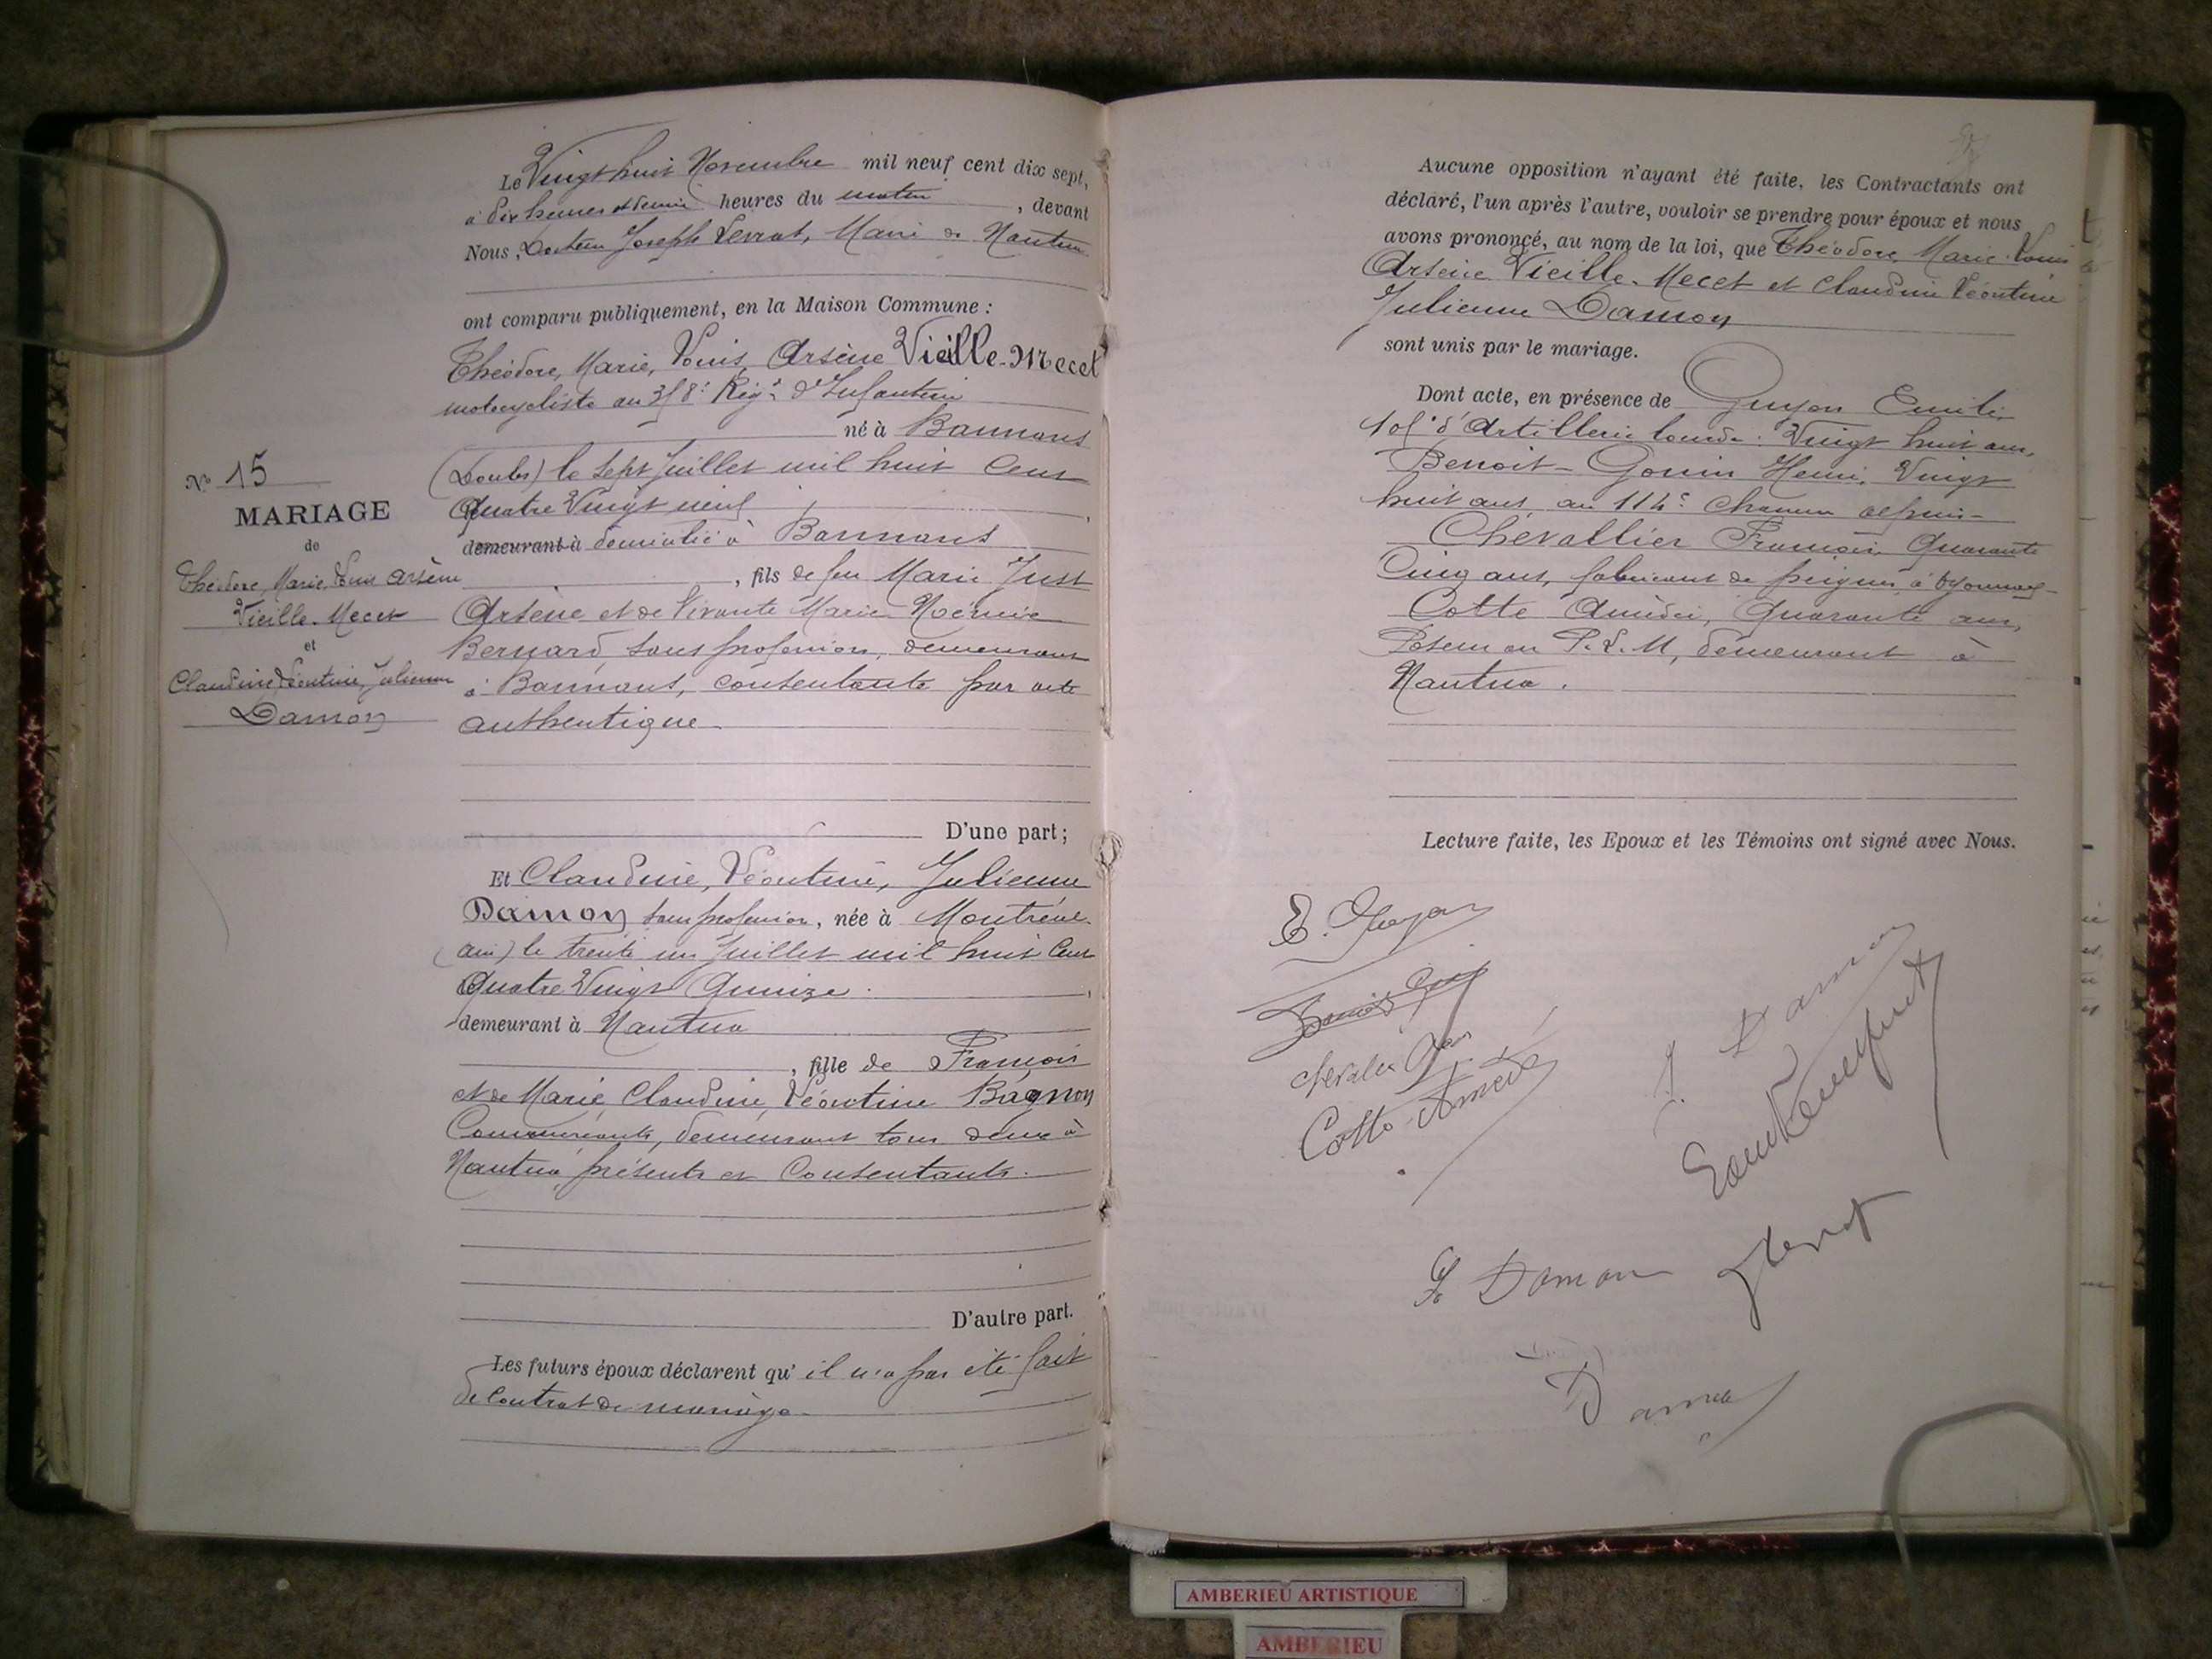 Le Vingt huit Novembre mil neuf cent dix sept,
à dix heures et demie heures du matin, devant
Nous, Docteur Joseph Levrat, Maire de Nantua
ont comparu publiquement, en la Maison Commune :
Théodore, Marie, Louis, Arsène Vieille-Mecet
motocycliste au 358e Régt d'Infanterie
né à Bannans
(Doubs) le sept Juillet mil huit Cent
Quatre Vingt neuf
demeurant à domicilié à Bannans
, fils de feu Marie Just
Arsène et de Vivante Marie Noémie
Bernard, sans profession, demeurant
à Bannans, consentante par acte
authentique
D'une part;
Nº 15
MARIAGE
de
Théodore, Marie, Louis Arsène
Vieille-Mecet
et
Claudine, Léontine, Julienne
Damon
Et Claudine, Léontine, Julienne
Damon sans profession, née à Montréal
(Ain) le trente un Juillet mil huit Cent
Quatre Vingt Quinze
demeurant à Nantua
, fille de François
et de Marie, Claudine, Léontine Bagnon
Commerçants, demeurant tous deux à
Nantua, présents et Consentants.
D'autre part.
Les futurs époux déclarent qu' il n'a pas été fait
de Contrat de mariage
Aucune opposition n'ayant été faite, les Contractants ont
déclaré, l'un après l'autre, vouloir se prendre pour époux et nous
avons prononcé, au nom de la loi, que Théodore, Marie Louis
Arsène Vieille-Mecet et Claudine Léontine
Julienne Damon
sont unis par le mariage.
Dont acte, en présence de Guyon Emile
d'Artillerie lourde. Vingt huit ans,
Benoit-Gonin Henri, Vingt
huit ans, au 114e Chasseurs alpins-
Chevallier François, Quarante
Cinq ans, fabricant de peignes, à Oyonnax-
Cotte Amédée, Quarante ans,
Poseur au P.L.M, demeurant à
Nantua.
Lecture faite, les Epoux et les Témoins ont signé avec Nous.
E. Guyon
Cotte Amédée
J. Damon
F. Damon
Damon
AMBERIEU ARTISTIQUE
AMBERIEU